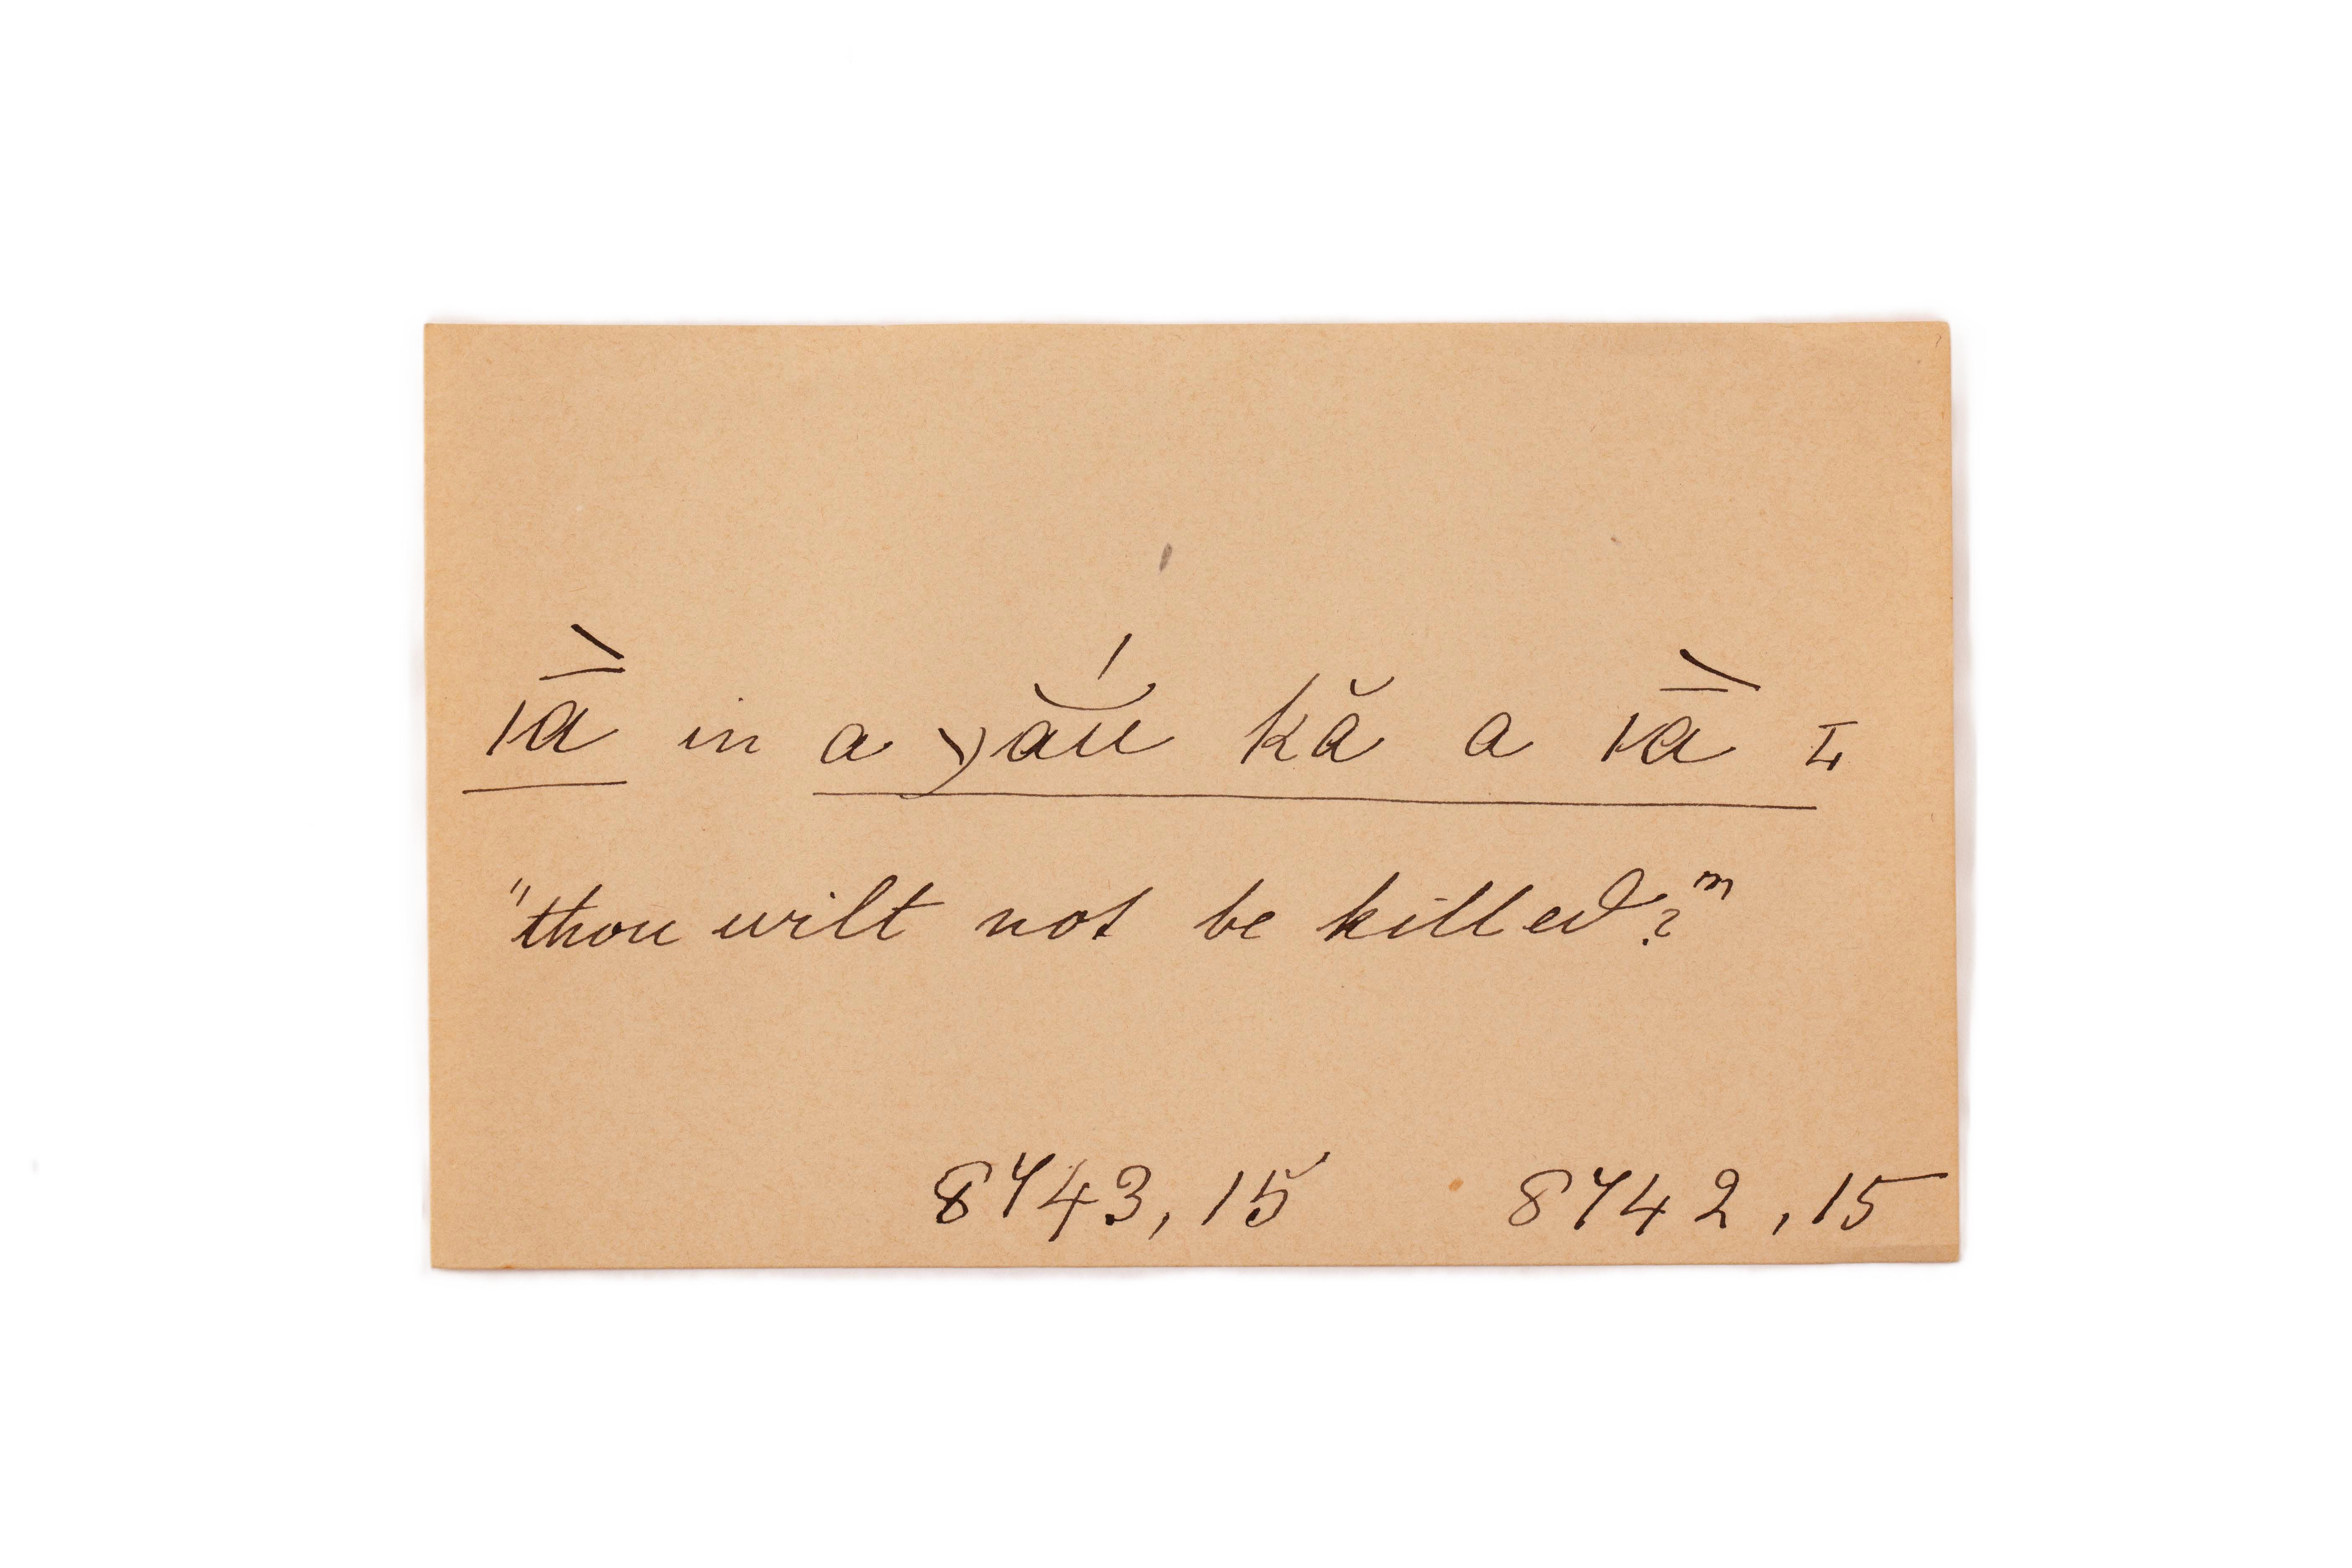 ǀā̀ in a yăú̗ kă a ǀā̀
"thou wilt not be killed?"
8743,15 8742,15